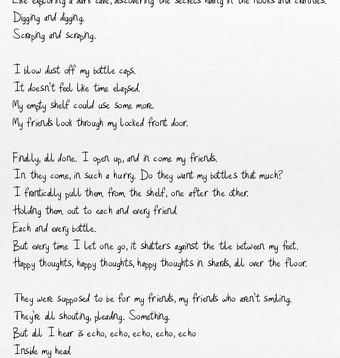 Like exploring a dark cave, discovering the secrets hiding in the nooks and crannies.
Digging and digging.
Scraping and scraping.
I blow dust off my bottle caps.
It doesn't feel like time elapsed.
My empty shelf could use some more.
My friends look through my locked front door.
Finally, all done. I open up, and in come my friends.
In they come, in such a hurry. Do they want my bottles that much?
I frantically pull them from the shelf, one after the other.
Holding them out to each and every friend.
Each and every bottle.
But every time I let one go, it shatters against the tile between my feet.
Happy thoughts, happy thoughts, happy thoughts in shards, all over the floor.
They were supposed to be for my friends, my friends who aren't smiling.
They're all shouting, pleading. Something.
But all I hear is echo, echo, echo, echo, echo
Inside my head